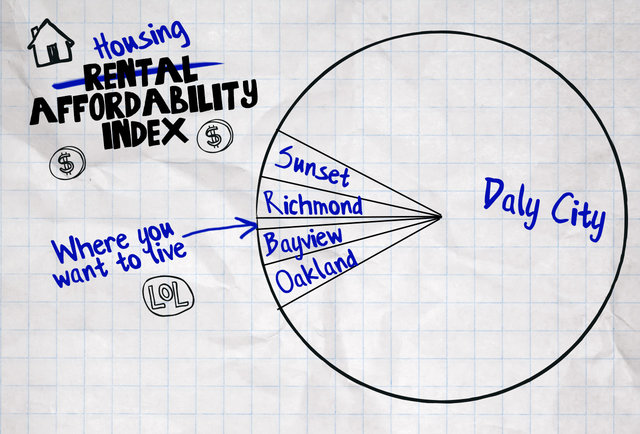 Housing
RENTAL
AFFORDABILITY
INDEX
$
$
Sunset
Richmond
Bayview
Oakland
Daly City
Where you
want to live
LOL